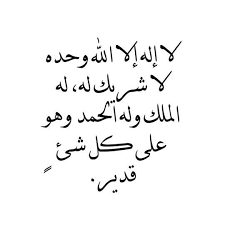 لا إله إلا الله وحده
لا شريك له، له
الملك وله الحمد وهو
على كل شئ
قدير.